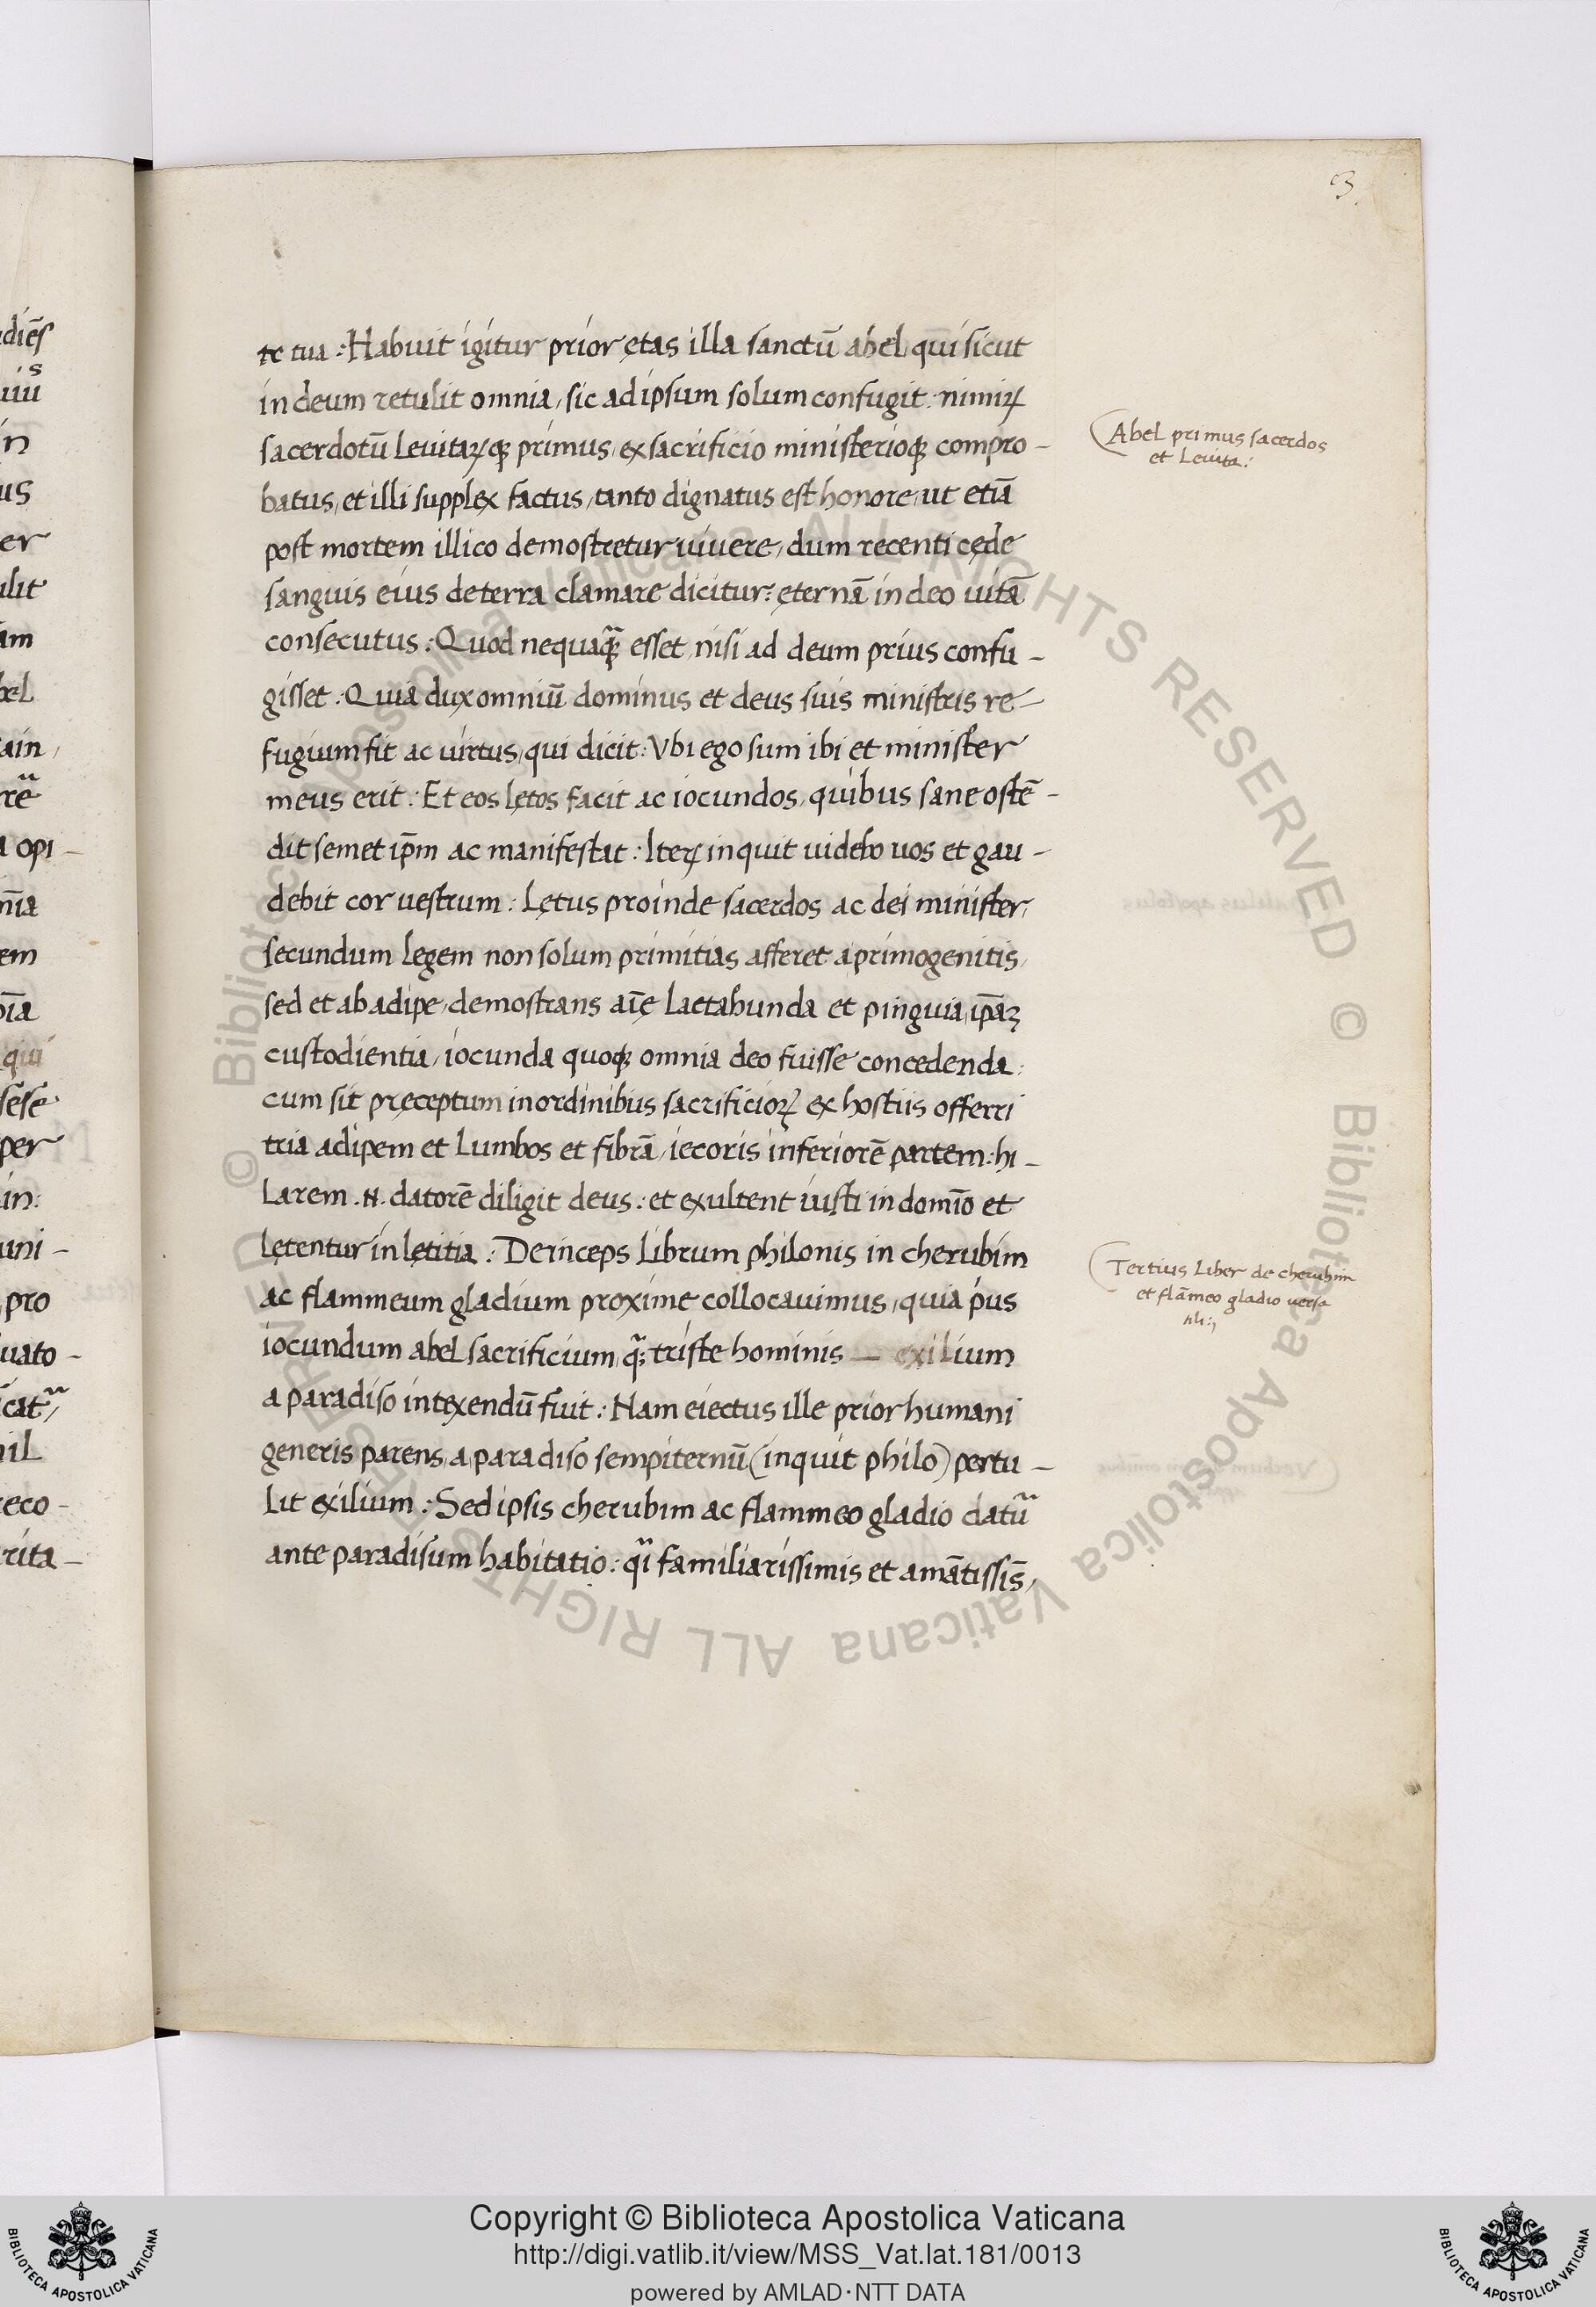 3
te tua : Habuit igitur prior ętas illa sanctū abel, qui sicut
in deum retulit omnia, sic ad ipsum solum confugit : nimiꝝ
sacerdotū leuitaꝝqꝫ primus, ex sacrificio ministerioqꝫ compro-
batus, et illi supplex factus, tanto dignatus est honore, ut etiā
post mortem illico demostretur uiuere, dum recenti cęde
sanguis eius de terra clamare dicitur : ęternā in deo uitā
consecutus : Quod nequaqꝫ esset, nisi ad deum prius confu-
gisset : Quia dux omniū dominus et deus suis ministris re-
fugium fit ac uirtus, qui dicit : Vbi ego sum ibi et minister
meus erit : Et eos lętos facit ac iocundos, quibus sane ostē-
dit semet ip̄m ac manifestat : Iteꝝ inquit uidebo uos et gau-
debit cor uestrum : Lętus proinde sacerdos ac dei minister,
secundum legem non solum primitias afferet a primogenitis,
sed et ab adipe, demostrans aīę laetabunda et pinguia, ip̄aꝝ
custodientia, iocunda quoqꝫ omnia deo fuisse concedenda :
cum sit pręceptum in ordinibus sacrificioꝝ ex hostiis offerri
tria adipem et lumbos et fibrā, iecoris inferiorē partem : hi-
larem .N. datorē diligit deus : et exultent iusti in domīo et
lętentur in lętitia : Deinceps librum philonis in cherubim
ac flammeum gladium proxime collocauimus, quia p̓us
iocundum abel sacrificium, qꝫ triste hominis — exilium
a paradiso intexendū fuit : Nam eiectus ille prior humani
generis parens, a paradiso sempiternū (inquit philo) pertu-
lit exilium : Sed ipsis cherubim ac flammeo gladio datū
ante paradisum habitatio : qi familiarissimis et amātissīs,
Abel primus sacerdos
et Leuita :
Tertius Liber de cherubim
et flāmeo gladio uersa
tili :,
diēs
is
uiū
in
us
er
ulit
am
bel
cain,
rē
a opi-
nīa
em
oīa
qui
sese
per
in :
uni-
pro
uato-
cat,
nil
reco-
rita-
© Biblioteca Apostolica Vaticana ALL RIGHTS RESERVED © Biblioteca Apostolica Vaticana ALL RIGHTS RESERVED
Copyright © Biblioteca Apostolica Vaticana
http://digi.vatlib.it/view/MSS_Vat.lat.181/0013
powered by AMLAD·NTT DATA
BIBLIOTECA APOSTOLICA VATICANA
BIBLIOTECA APOSTOLICA VATICANA